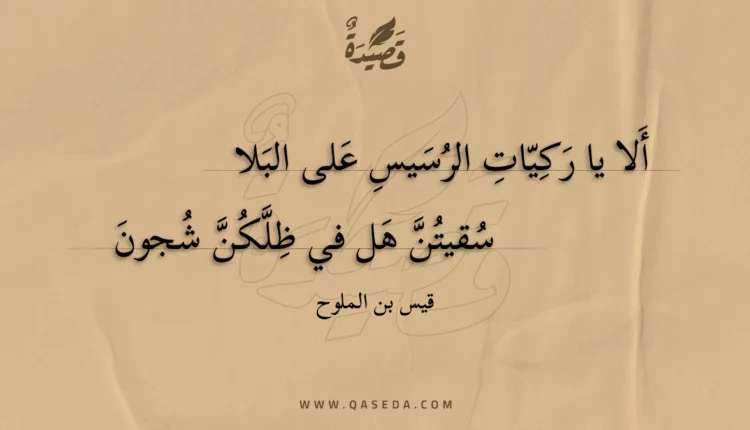 قَصِيدَةٌ
أَلا يا رَكِيّاتِ الرُسَيسِ عَلى البَلا
سُقيتُنَّ هَل في ظِلَّكُنَّ شُجونَ
قيس بن الملوح
WWW.QASEDA.COM